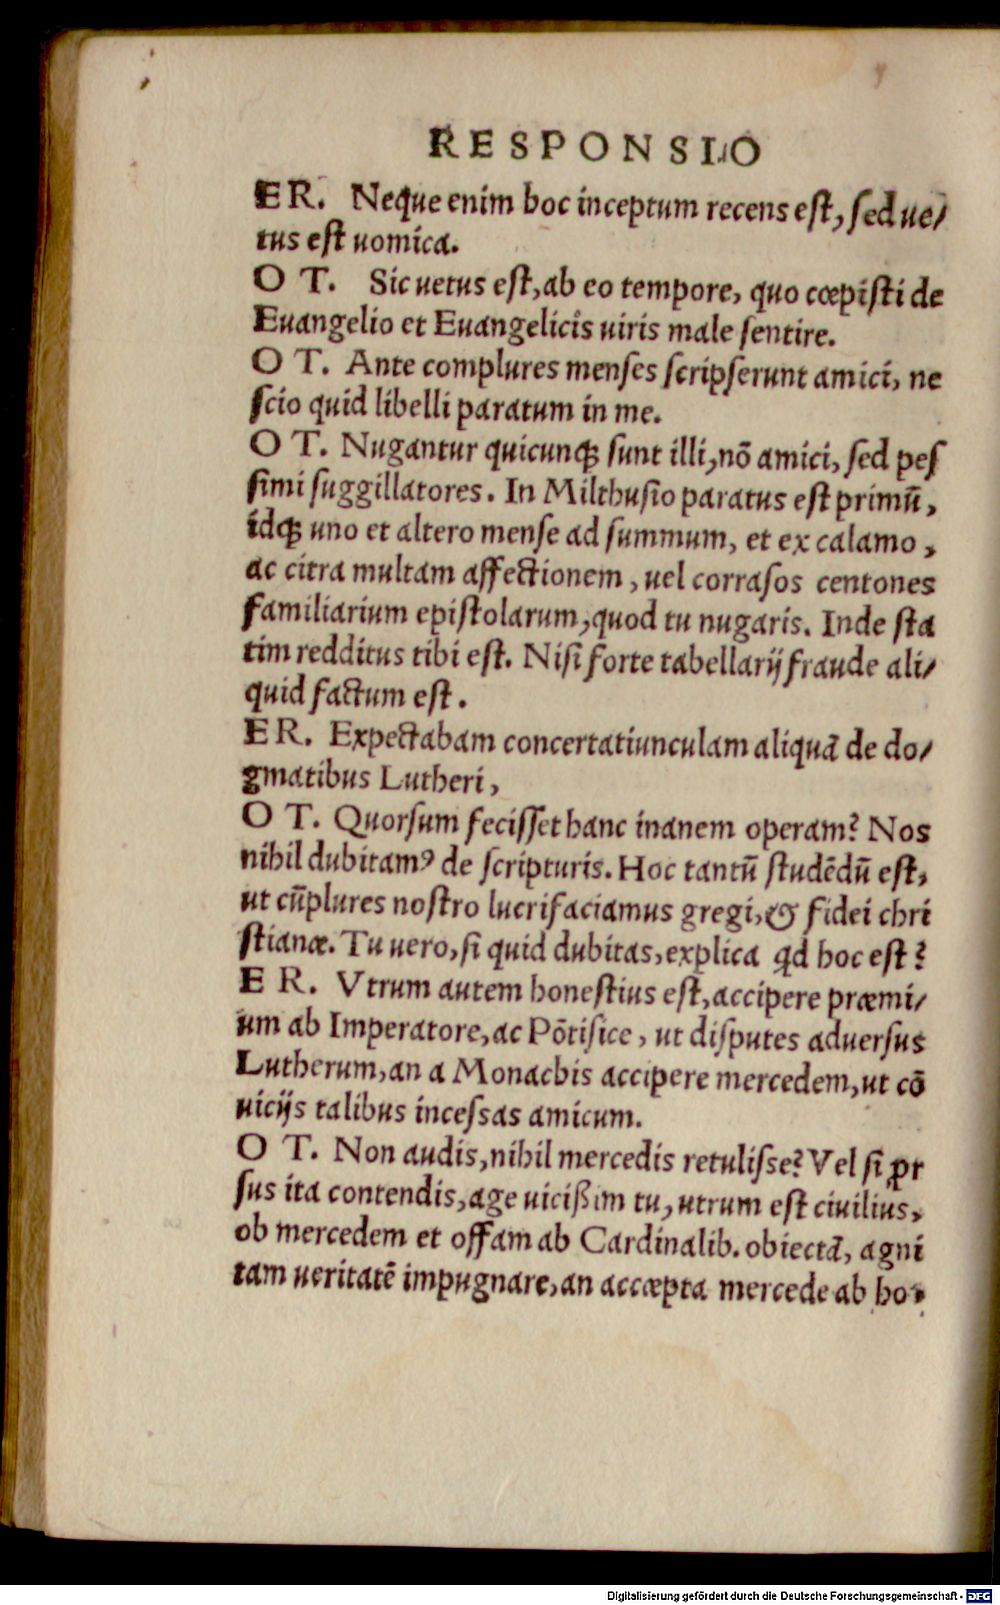 RESPONSIO
ER. Neque enim hoc inceptum recens eſt, ſed ue/
tus eſt uomica.
OT. Sic uetus eſt, ab eo tempore, quo cœpiſti de
Euangelio et Euangelicis uiris male ſentire.
OT. Ante complures menſes ſcripſerunt amici, ne
ſcio quid libelli paratum in me.
OT. Nugantur quicunqꝫ ſunt illi, nō amici, ſed peſ
ſimi ſuggillatores. In Milthuſio paratus eſt primū,
idqꝫ uno et altero menſe ad ſummum, et ex calamo,
ac citra multam affectionem, uel corraſos centones
familiarium epiſtolarum, quod tu nugaris. Inde ſta
tim redditus tibi eſt. Niſi forte tabellarij fraude ali/
quid factum eſt.
ER. Expectabam concertatiunculam aliquā de do/
gmatibus Lutheri,
OT. Quorſum feciſſet hanc inanem operam? Nos
nihil dubitamꝰ de ſcripturis. Hoc tantū ſtudēdū eſt,
ut cūplures noſtro lucrifaciamus gregi, & fidei chri
ſtianæ. Tu uero, ſi quid dubitas, explica qd hoc eſt?
ER. Vtrum autem honeſtius eſt, accipere præmi/
um ab Imperatore, ac Pōtifice, ut diſputes aduerſus
Lutherum, an a Monachis accipere mercedem, ut cō
uicijs talibus inceſſas amicum.
OT. Non audis, nihil mercedis retuliſſe? Vel ſi ꝓr
ſus ita contendis, age uicißim tu, utrum eſt ciuilius,
ob mercedem et offam ab Cardinalib. obiectā, agni
tam ueritatē impugnare, an accæpta mercede ab ho/
Digitalisierung gefördert durch die Deutsche Forschungsgemeinschaft - DFG